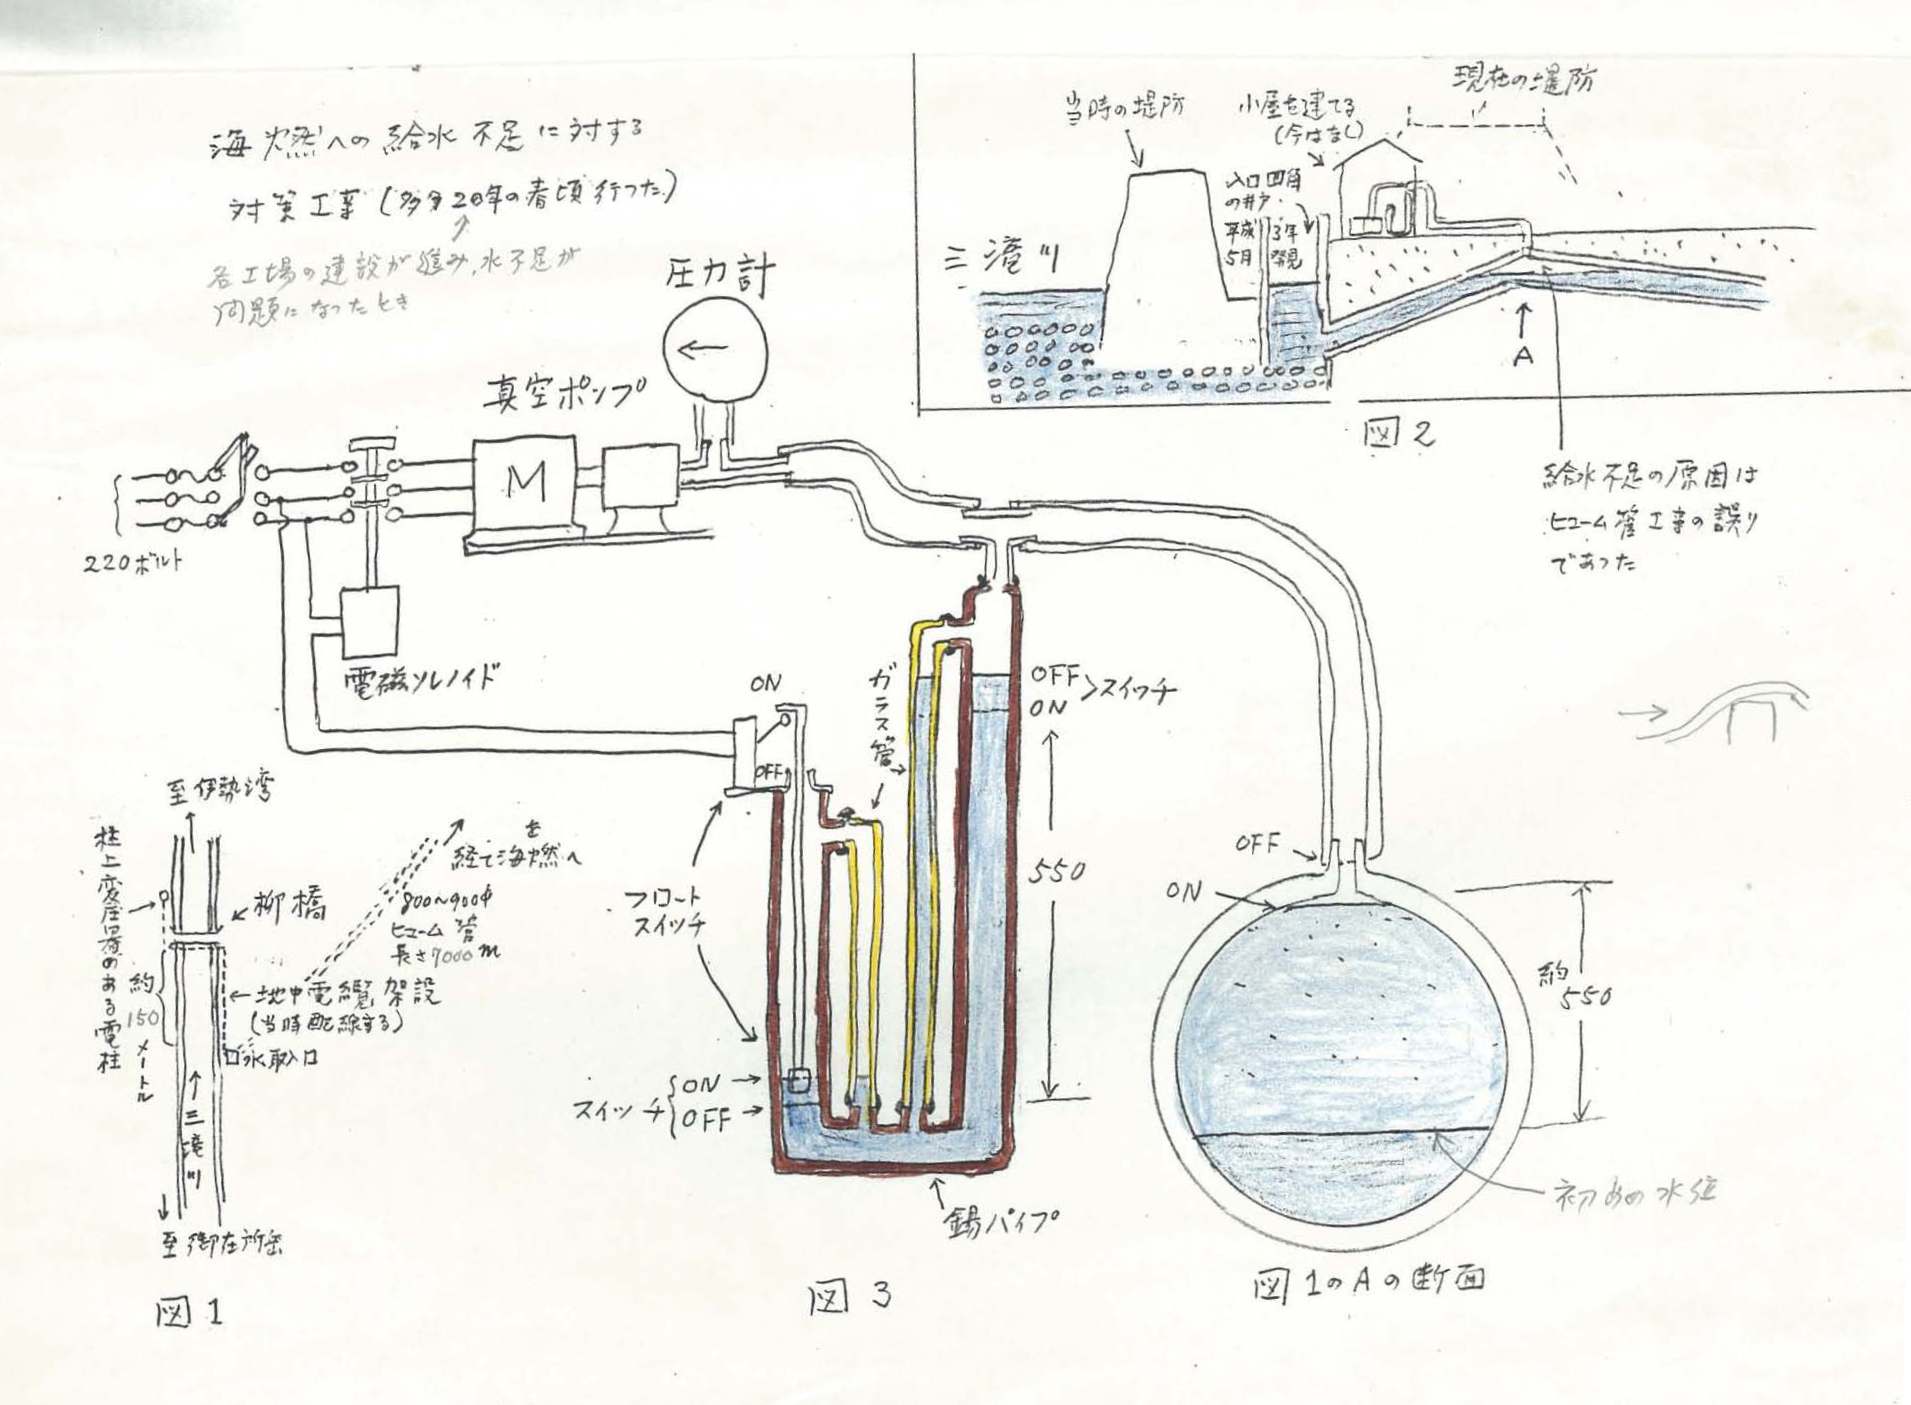 海燃への給水不足に対する
対策工事(多分20年の春頃行った)
各工場の建設が進み、水不足が
問題になったとき
圧力計
真空ポンプ
M
220ボルト
電磁ソレノイド
ON
OFF
ガラス管
OFF
ON
スイッチ
550
フロート
スイッチ
スイッチ
ON
OFF
錫パイプ
図3
当時の堤防
小屋を建てる
(今はなし)
現在の堤防
入口四角
の井戸
平成3年
5月発見
三滝川
A
図2
給水不足の原因は
ヒューム管工事の誤り
であった
OFF
ON
約
550
初めの水位
図1のAの断面
至伊勢湾
柱上変圧器のある電柱
柳橋
を
経て海燃へ
800~900φ
ヒューム管
長さ7000m
約
150
メートル
地中電纜架設
(当時配線する)
水取入口
三滝川
至御在所岳
図1